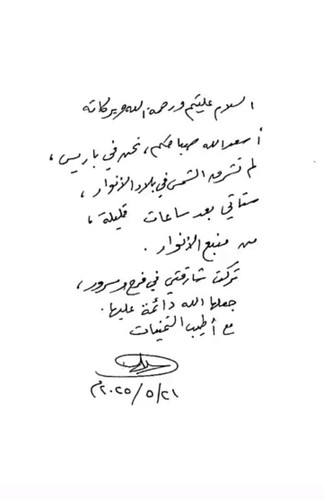 السلام عليكم ورحمة الله وبركاته
أسعد الله صباحكم، نحن في باريس،
لم تشرق الشمس في بلاد الأنوار،
ستأتي بعد ساعات قليلة،
من منبع الأنوار.
تركت شارقتي في فرح وسرور،
جعلها الله دائمة عليها.
مع أطيب التمنيات
٢٠٢٥/٥/٢١م